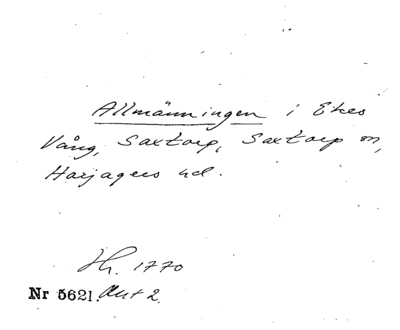 Allmänningen i Ekes
Vång, Saxtorp, Saxtorp sn,
Harjagers hd.
Hr. 1770
Nr 5621. Akt 2.